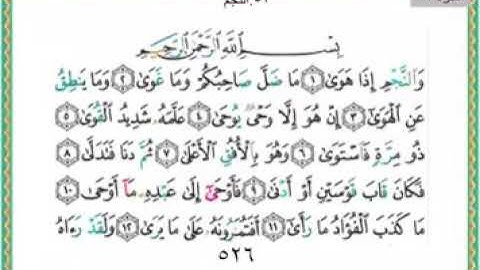 النجم
بِسْمِ ٱللَّهِ ٱلرَّحْمَٰنِ ٱلرَّحِيمِ
وَٱلنَّجْمِ إِذَا هَوَىٰ ١ مَا ضَلَّ صَاحِبُكُمْ وَمَا غَوَىٰ ٢ وَمَا يَنطِقُ
عَنِ ٱلْهَوَىٰ ٣ إِنْ هُوَ إِلَّا وَحْىٌ يُوحَىٰ ٤ عَلَّمَهُۥ شَدِيدُ ٱلْقُوَىٰ ٥
ذُو مِرَّةٍ فَٱسْتَوَىٰ ٦ وَهُوَ بِٱلْأُفُقِ ٱلْأَعْلَىٰ ٧ ثُمَّ دَنَا فَتَدَلَّىٰ ٨
فَكَانَ قَابَ قَوْسَيْنِ أَوْ أَدْنَىٰ ٩ فَأَوْحَىٰٓ إِلَىٰ عَبْدِهِۦ مَآ أَوْحَىٰ ١٠
مَا كَذَبَ ٱلْفُؤَادُ مَا رَأَىٰٓ ١١ أَفَتُمَٰرُونَهُۥ عَلَىٰ مَا يَرَىٰ ١٢ وَلَقَدْ رَءَاهُ
٥٢٦